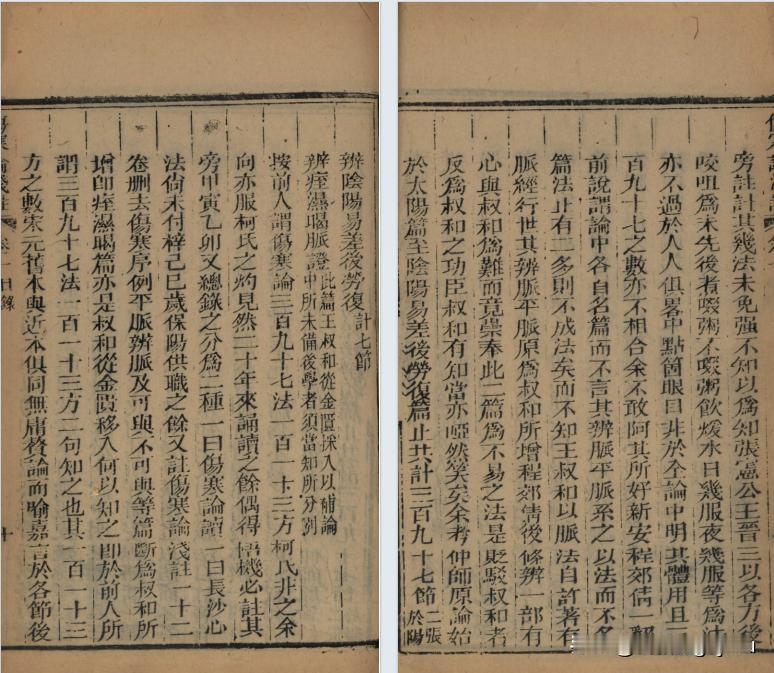 辨陰陽易差後勞復計七節
辨痙濕暍脈證此篇王叔和從金匱採入以補論中所未備後學者須當知所分別
按前人謂傷寒論三百九十七法一百一十三方柯氏非之余
向亦服柯氏之灼見然二十年來誦讀之餘偶得悟機必註其
旁甲寅乙卯又總錄之分爲二種一曰傷寒論讀一曰長沙心
法尚未付梓己巳歲保陽供職之餘又註傷寒論淺註一十二
卷刪去傷寒序例平脈辨脈及可與不可與等篇斷爲叔和所
增即痙濕暍篇亦是叔和從金匱移入何以知之即於前人所
謂三百九十七法一百一十三方二句知之也其一百一十三
方之數宋元舊本與近本俱同無庸贅論而喻嘉言於各節後
傷寒論淺註 卷一 目錄 十
旁註計其幾法未免強不知以爲知張憲公王晉三以各方後
咬咀爲末先後煮啜粥不啜粥飲煖水日幾服夜幾服等爲法
亦不過於人人俱畧中點箇眼目非於全論中明其體用且三
百九十七之數亦不相合余不敢阿其所好新安程郊倩一翻
前說謂論中各自名篇而不言其辨脈平脈系之以法而不名
篇法止有二多則不成法矣而不知王叔和以脈法自許著有
脈經行世其辨脈平脈原爲叔和所增程郊倩後條辨一部有
心與叔和爲難而竟崇奉此二篇爲不易之法是貶駁叔和者
反爲叔和之功臣叔和有知當亦啞然笑矣余考仲師原論始
於太陽篇至陰陽易差後勞復篇止共計三百九十七節二張於陽